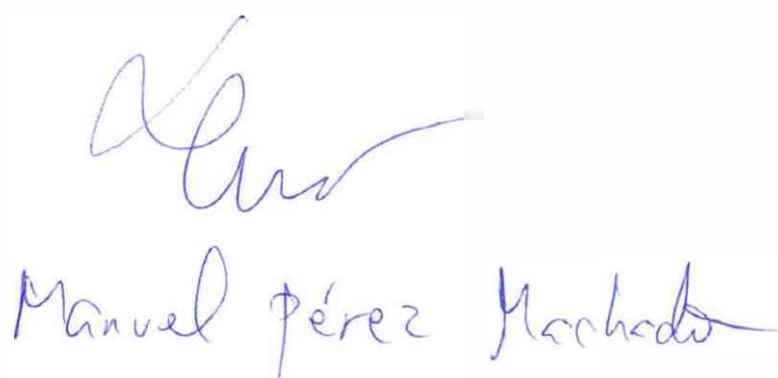 Manuel Pérez Machado